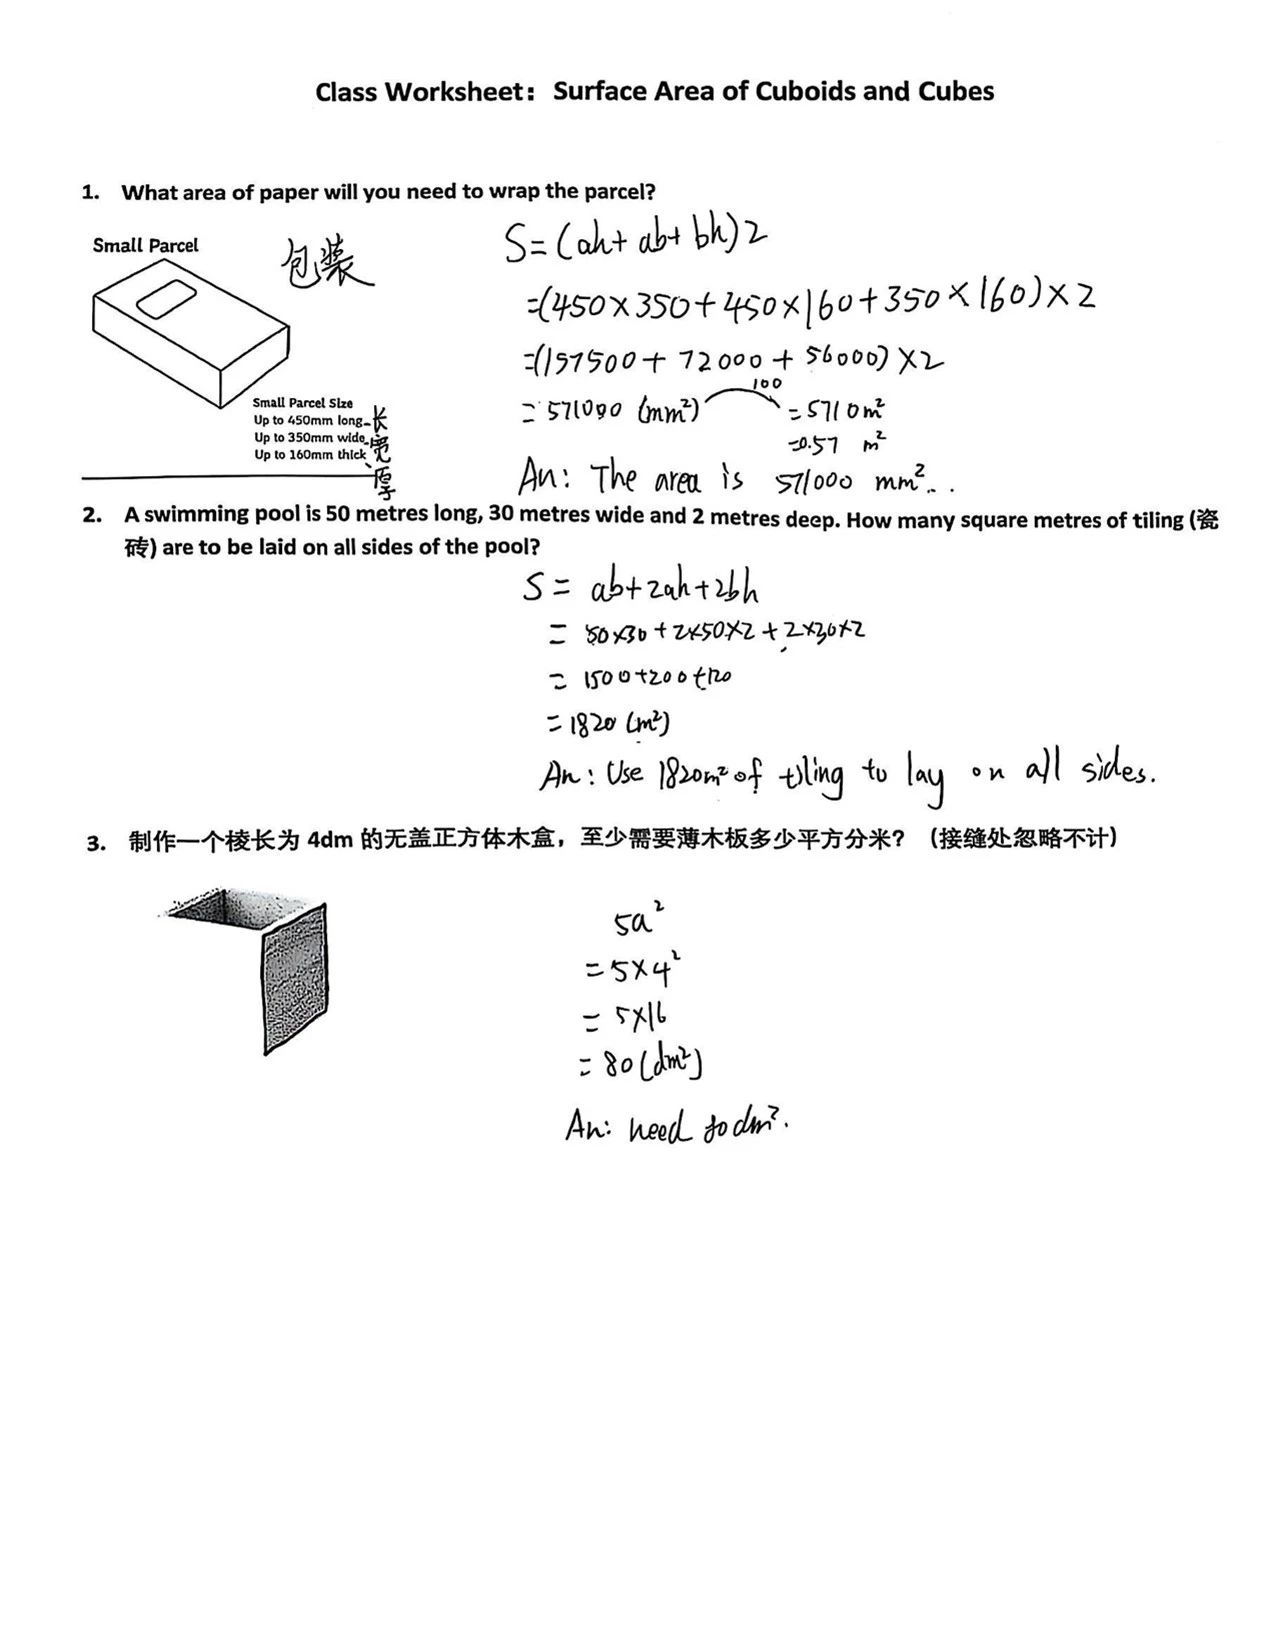 Class Worksheet: Surface Area of Cuboids and Cubes
1. What area of paper will you need to wrap the parcel?
Small Parcel
包装
Small Parcel Size
Up to 450mm long 长
Up to 350mm wide 宽
Up to 160mm thick 厚
S=(ah+ab+bh)2
=(450×350+450×160+350×160)×2
=(157500+72000+56000)×2
=571000 (mm²)
100
=5710m²
=0.57 m²
An: The area is 571000 mm²..
2. A swimming pool is 50 metres long, 30 metres wide and 2 metres deep. How many square metres of tiling (瓷
砖) are to be laid on all sides of the pool?
S= ab+2ah+2bh
= 50×30+2×50×2+2×30×2
= 1500+200+120
=1820 (m²)
An: Use 1820m² of tiling to lay on all sides.
3. 制作一个棱长为 4dm 的无盖正方体木盒，至少需要薄木板多少平方分米？（接缝处忽略不计）
5a²
=5×4²
=5×16
=80(dm²)
An: need 80dm².